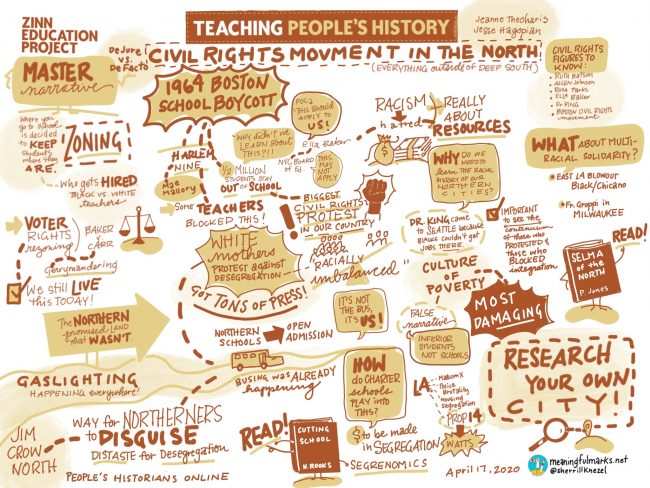 ZINN
EDUCATION
PROJECT
TEACHING PEOPLE'S HISTORY
Jeanne Theoharis
Jesse Hagopian
De Jure
vs.
De Facto
CIVIL RIGHTS MOVMENT IN THE NORTH
(EVERYTHING outside of DEEP SOUTH)
MASTER
narrative
Where you
go to School
is decided
to KEEP
Students
where they
ARE.
ZONING
Who gets HIRED
BLACK vs. WHITE
teachers
VOTER
RIGHTS
rezoning
BAKER
v.
CARR
Gerrymandering
We still LIVE
this TODAY!
The NORTHERN
promised LAND
that WASN'T.
GASLIGHTING
HAPPENING everywhere!
JIM
CROW
NORTH
WAY for NORTHERNERS
to DISGUISE
DISTASTE for Desegregation
PEOPLE'S HISTORIANS ONLINE
1964 BOSTON
SCHOOL BOYCOTT
HARLEM
NINE
Mae
Mallory
Some TEACHERS
BLOCKED THIS!
WHY didn't WE
LEARN about
THIS?!!
1/2 MILLION
STUDENTS STAY
OUT OF SCHOOL
POC?
THIS Should
APPLY to
US!
Ella Baker
NYC BOARD
of Ed.
THIS
MAY
NOT
APPLY
BIGGEST
CIVIL RIGHTS
PROTEST
IN OUR COUNTRY
WHITE
mothers
PROTEST against
DESEGREGATION
GOT TONS OF PRESS!
"RACIALLY
imbalanced"
NORTHERN
SCHOOLS
OPEN
ADMISSION
IT'S NOT
THE BUS,
IT'S
US!
BUSING WAS ALREADY
happening
READ!
CUTTING
SCHOOL
N. ROOKS
HOW
do CHARTER
schools
PLAY into
THIS?
$ to be made
in SEGREGATION
SEGRENOMICS
RACISM
hatred
REALLY
ABOUT
RESOURCES
WHY DO WE
NEED to
learn the RACIAL
HISTORY of OUR
NORTHERN
CITIES?
DR. KING came
to SEATTLE because
BLACKS couldn't get
JOBS THERE.
IMPORTANT
to SEE the
continuum of
those who
PROTESTED &
those who
BLOCKED
integration
CULTURE
OF
POVERTY
FALSE
narrative
INFERIOR
STUDENTS
NOT SCHOOLS
MOST
DAMAGING
LA
Malcom X
Police
Brutality
Housing
Segregation
PROP 14
WATTS
April 17, 2020
CIVIL RIGHTS
FIGURES TO
KNOW!
RUTH BATSON
ALLEN JOHNSON
Rosa Parks
ELLA Baker
Dr. King
BOSTON CIVIL RIGHTS
movement
WHAT ABOUT MULTI-
RACIAL SOLIDARITY?
EAST LA BLOWOUT
Black/Chicano
Fr. Groppi in
MILWAUKEE
READ!
SELMA
of the
NORTH
P. Jones
RESEARCH
YOUR OWN
CITY!
meaningfulmarks.net
@sherrillknezel